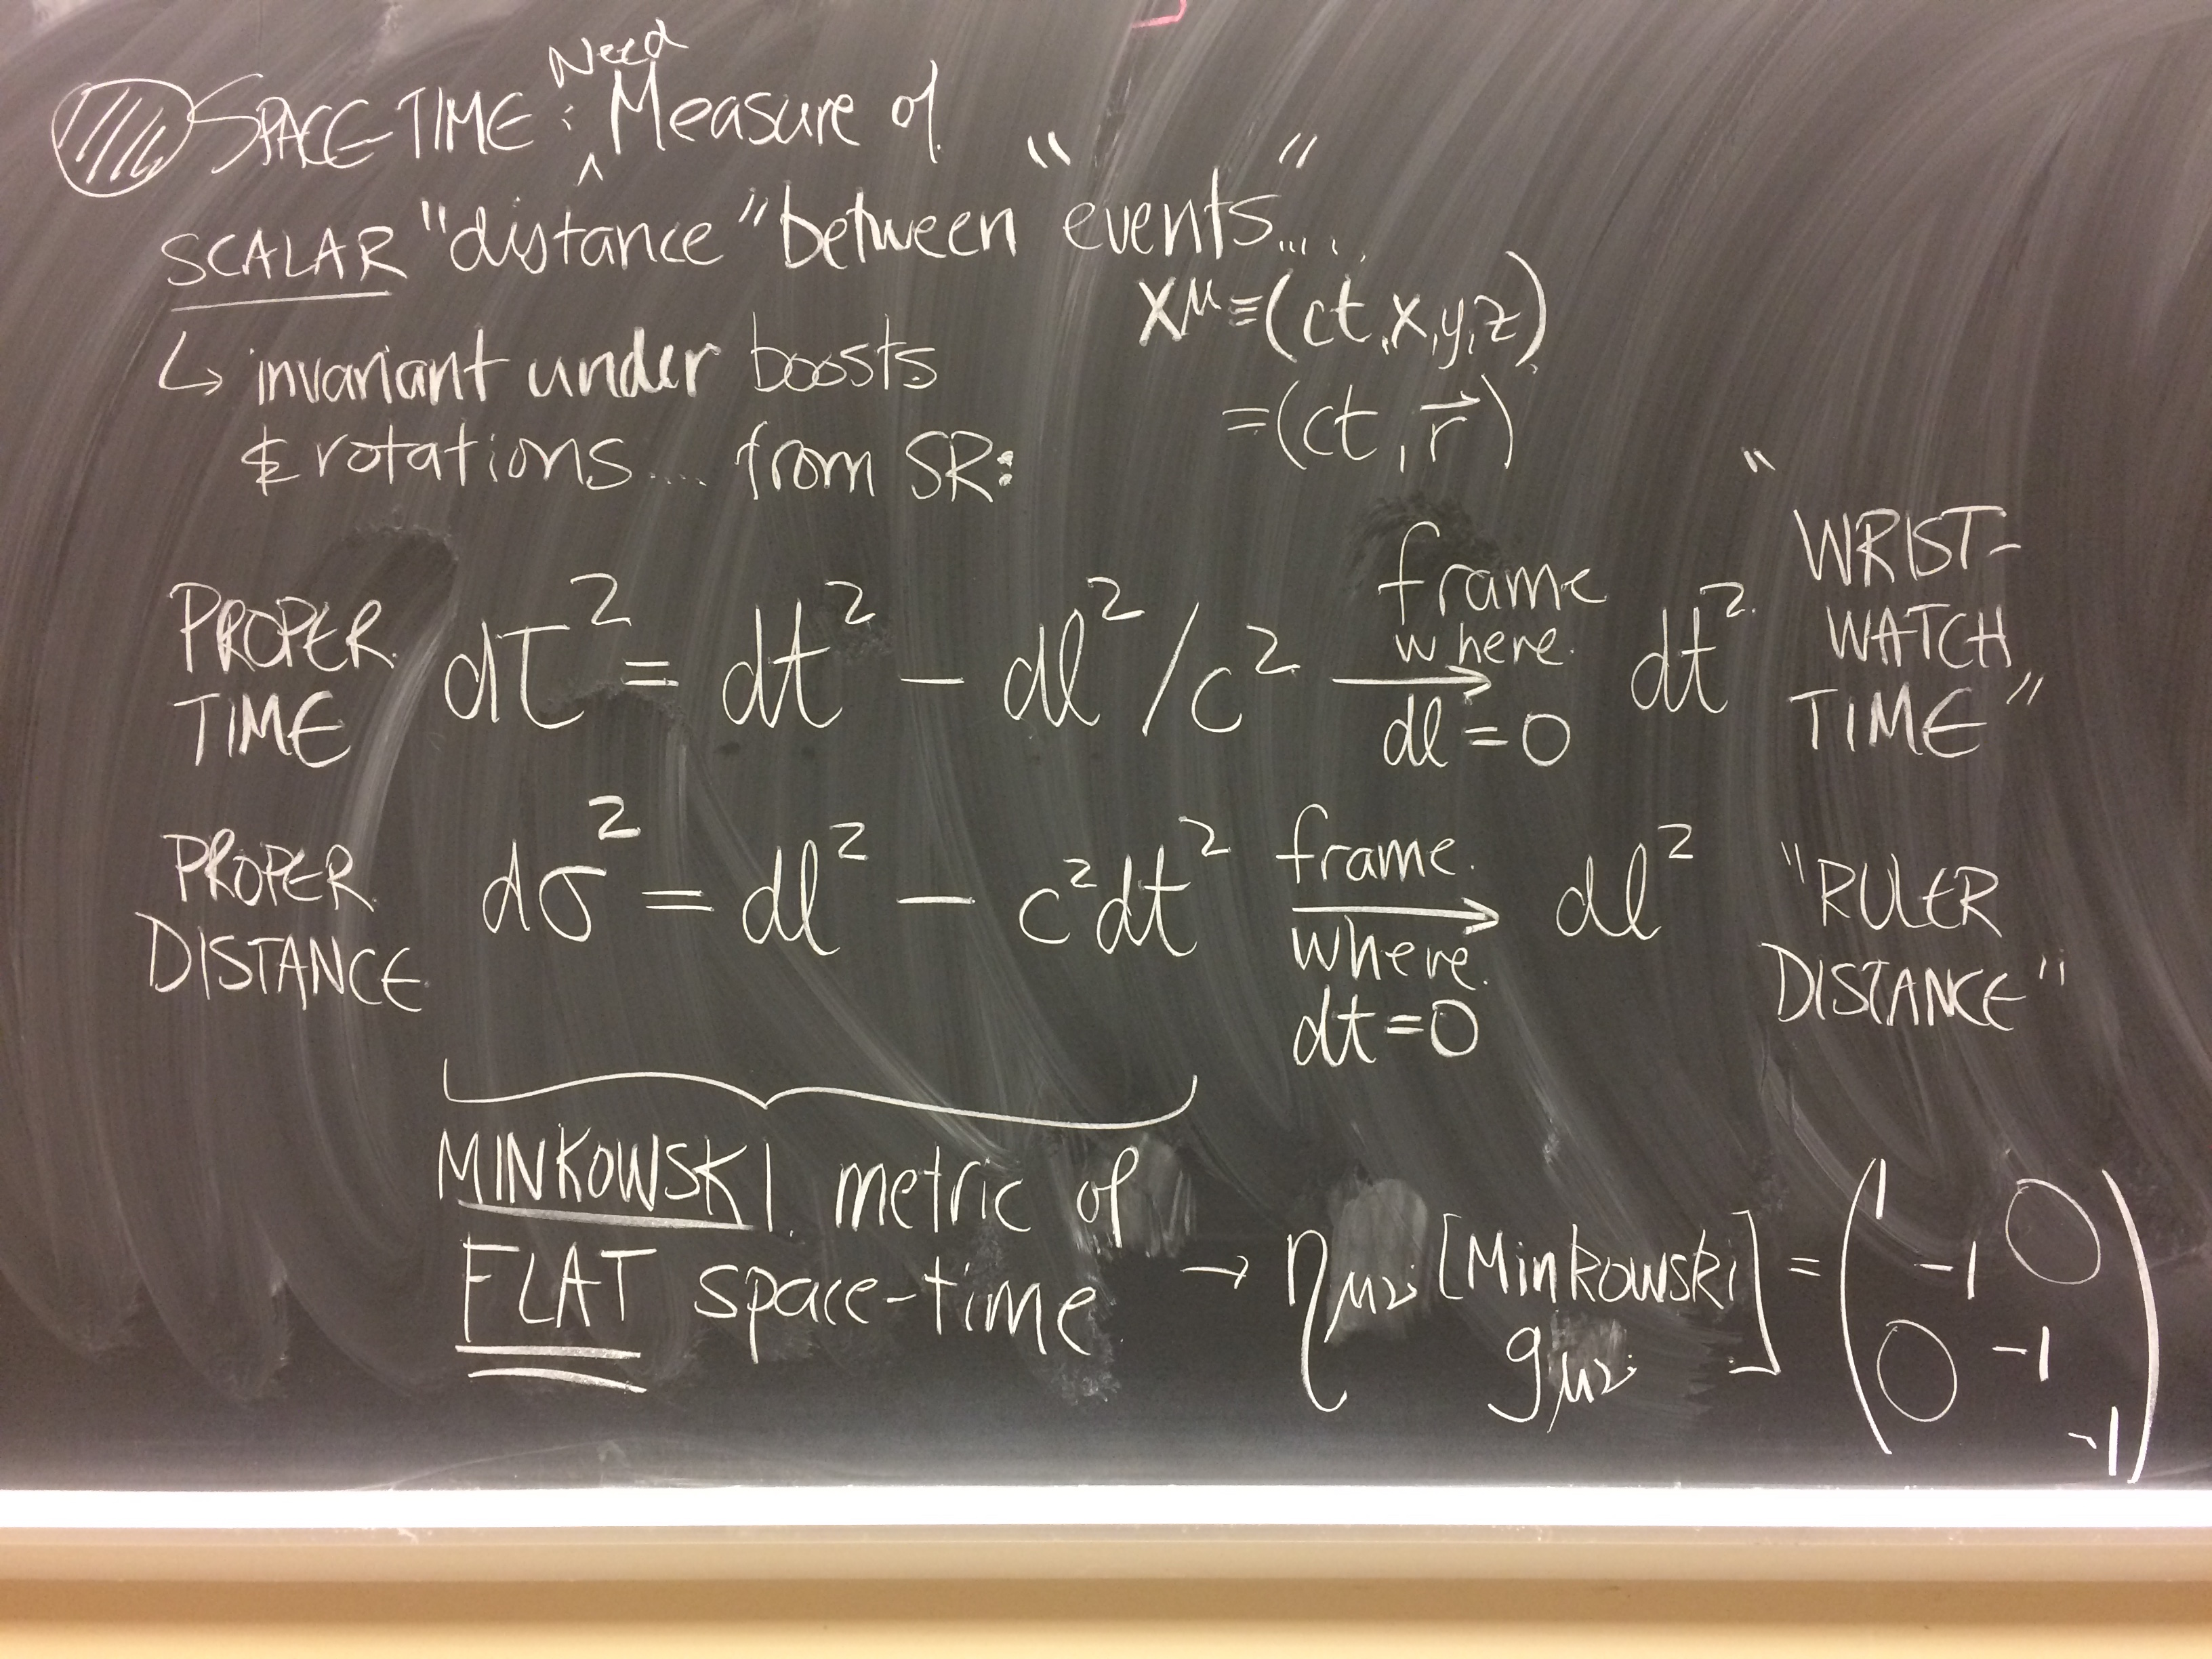 SPACE-TIME: Need Measure of
SCALAR "distance" between "events"....
↳ invariant under boosts
& rotations.... from SR:
x^μ ≡ (ct, x, y, z)
= (ct, r⃗)
PROPER TIME dτ² = dt² − dl²/c² frame where dl = 0 → dt² "WRIST-WATCH TIME"
PROPER DISTANCE dσ² = dl² − c²dt² frame where dt = 0 → dl² "RULER DISTANCE"
MINKOWSKI metric of
FLAT space-time → η_μν [Minkowski g_μν] = (1 -1 0 0 -1 -1)